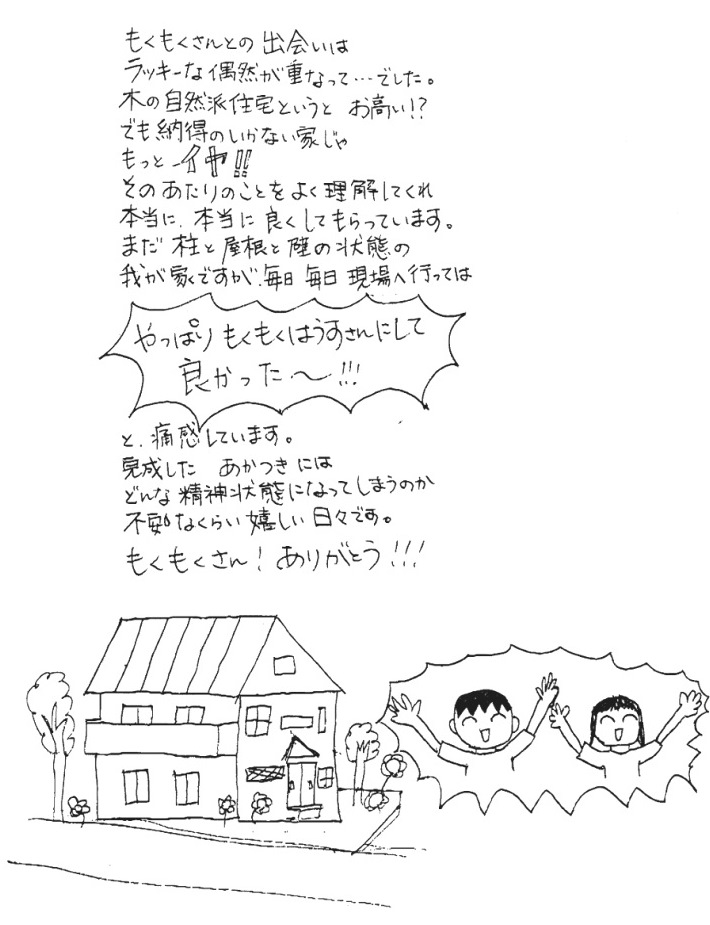 もくもくさんとの 出会いは
ラッキーな偶然が重なって…でした。
木の自然派住宅というと お高い!?
でも納得のいかない家じゃ
もっと イヤ!!
そのあたりのことをよく理解してくれ
本当に、本当に良くしてもらっています。
まだ 柱と屋根と壁の状態の
我が家ですが、毎日 毎日 現場へ行っては
やっぱりもくもくはうすさんにして
良かった〜!!!
と、痛感しています。
完成した あかつきには
どんな精神状態になってしまうのか
不安なくらい嬉しい日々です。
もくもくさん! ありがとう!!!